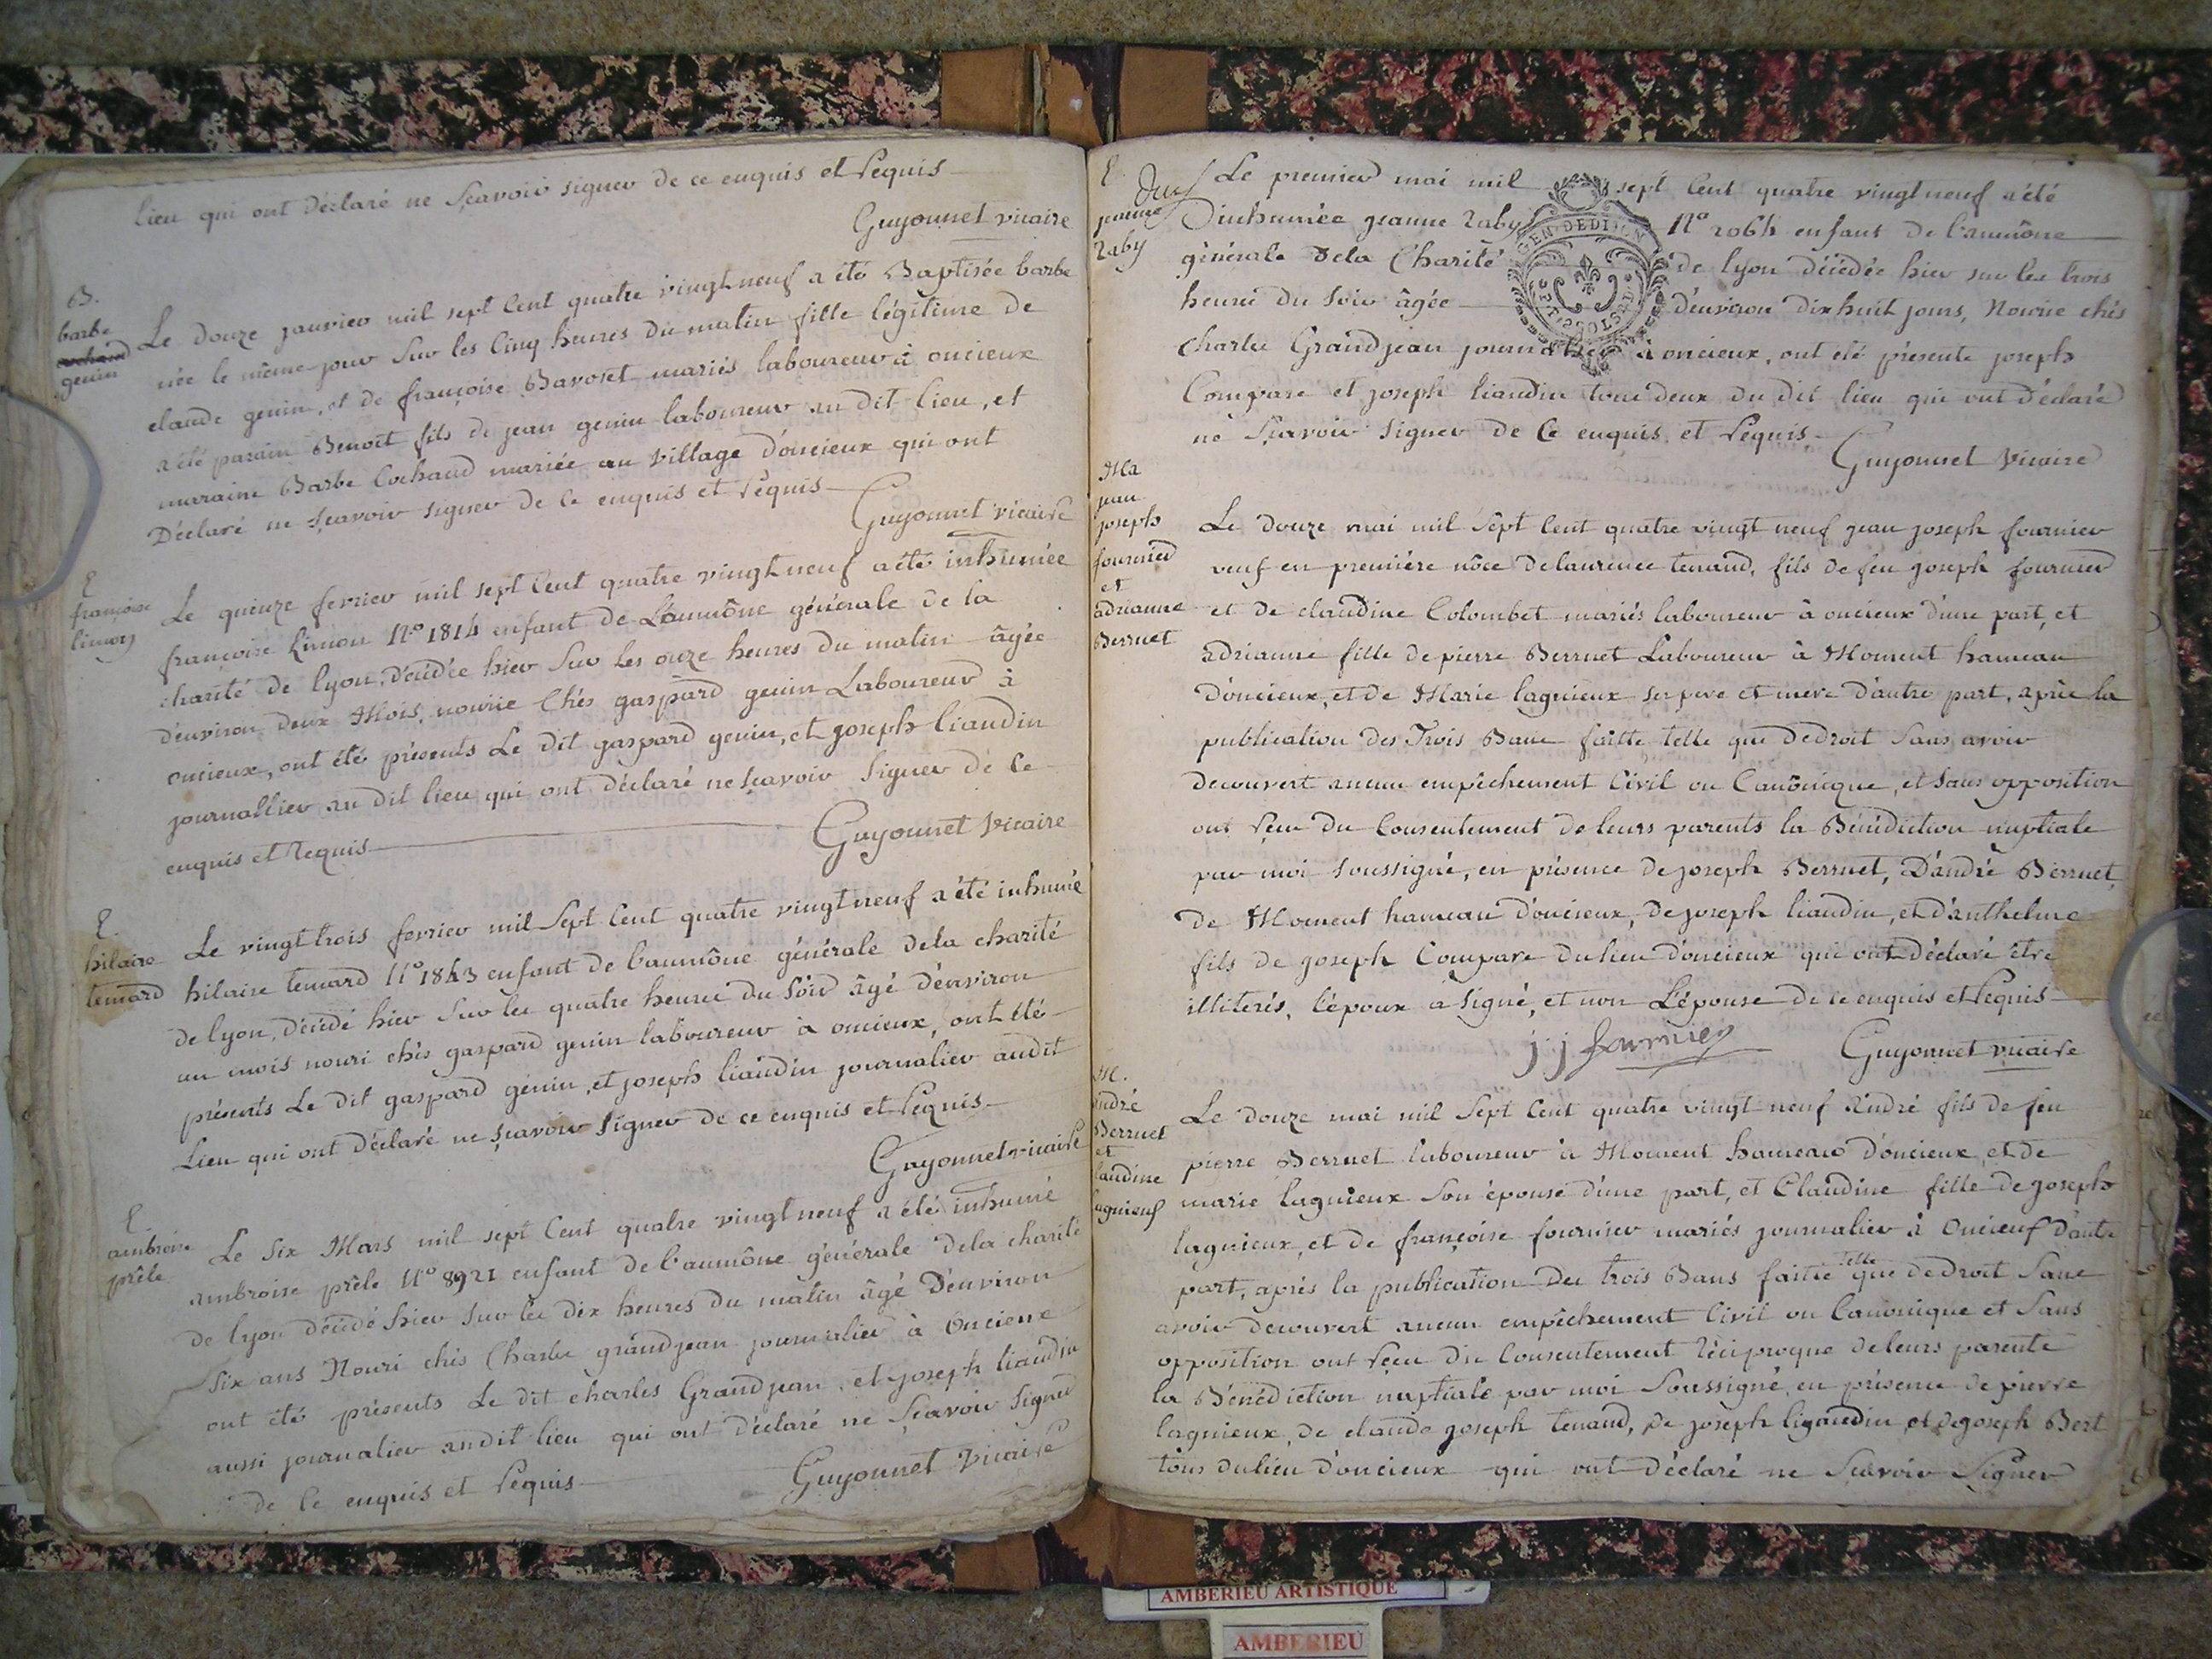 lieu qui ont déclaré ne sçavoir signer de ce enquis et requis
Guyonnet vicaire
B.
barbe
genin
Le douze janvier mil sept cent quatre vingt neuf a été Baptisée barbe
née le même jour sur les cinq heures du matin fille légitime de
claude genin, et de françoise Bavoset mariés laboureur à oncieux
a été parain Benoit fils de jean genin laboureur au dit lieu, et
maraine Barbe Cochaud mariée au village d'oncieux qui ont
Déclaré ne sçavoir signer de ce enquis et requis
Guyonnet vicaire
E
françoise
limon
Le quinze fevrier mil sept cent quatre vingt neuf a été inhumée
françoise Limon N° 1814 enfant de L'aumône générale de la
charité de lyon, décédée hier sur les onze heures du matin âgée
d'environ deux Mois, nourie chés gaspard genin Laboureur à
oncieux, ont été présents Le dit gaspard genin, et joseph liaudin
journallier au dit lieu qui ont déclaré ne sçavoir signer de ce
enquis et requis
Guyonnet vicaire
E.
hilaire
temard
Le vingt trois fevrier mil sept cent quatre vingt neuf a été inhumé
hilaire temard N° 1843 enfant de l'aumône générale de la charité
de lyon, décédé hier sur les quatre heures du soir âgé d'environ
un mois nouri chés gaspard genin laboureur à oncieux, ont été
présents Le dit gaspard genin, et joseph liaudin journalier audit
Lieu qui ont déclaré ne sçavoir signer de ce enquis et requis
Guyonnet vicaire
E.
ambroise
prêle
Le six Mars mil sept cent quatre vingt neuf a été inhumé
ambroise prêle N° 8921 enfant de l'aumône générale de la charité
de lyon décédé hier sur les dix heures du matin âgé d'environ
six ans Nouri chés Charles grandjean journalier à Oncieux
ont été présents Le dit charles Grandjean, et joseph liaudin
aussi journalier audit lieu qui ont déclaré ne sçavoir signer
de ce enquis et requis
Guyonnet vicaire
E.
jeanne
Raby
Le premier mai mil sept cent quatre vingt neuf a été
inhumée jeanne Raby N° 2064 enfant de l'aumône
générale de la Charité de lyon décédée hier sur les trois
heures du soir âgée d'environ dix huit jours, Nourie chés
charles Grandjean journalier à oncieux, ont été présents joseph
Compare et joseph liaudin tous deux du dit lieu qui ont déclaré
ne sçavoir signer de ce enquis et requis
Guyonnet vicaire
GEN DE DIJON
Ma
jean
joseph
fournier
et
adrianne
Berruet
Le douze mai mil sept cent quatre vingt neuf jean joseph fournier
veuf en première nôce de laurence tenaud, fils de feu joseph fournier
et de claudine Colombet mariés laboureur à oncieux d'une part, et
adrianne fille de pierre Berruet Laboureur à Moment hameau
d'oncieux, et de Marie lagnieux ses pere et mere d'autre part, après la
publication des Trois Bans faitte telle que de droit sans avoir
decouvert aucun empêchement Civil ou Canônique, et sans opposition
ont reçu du consentement de leurs parents la Bénédiction nuptiale
par moi soussigné, en présence de joseph Berruet, D'andré Berruet,
de Moment hameau d'oncieux, de joseph liaudin, et d'anthelme
fils de joseph Compare du lieu d'oncieux qui ont déclaré être
illiterés, l'époux a signé, et non L'épouse de ce enquis et requis
j. j fournier
Guyonnet vicaire
M.
andré
Berruet
et
laudine
agnieux
Le douze mai mil sept cent quatre vingt neuf andré fils de feu
pierre Berruet laboureur à Moment hameau d'oncieux et de
marie lagnieux son épouse d'une part, et Claudine fille de joseph
lagnieux, et de françoise fournier mariés journalier à Oncieux d'autre
part, après la publication des trois Bans faitte telle que de droit sans
avoir decouvert aucun empêchement Civil ou Canonique et sans
opposition ont reçu du consentement réciproque de leurs parents
la Bénédiction nuptiale par moi soussigné, en présence de pierre
lagnieux, de claude joseph tenaud, de joseph ligaudin, et de joseph Bert
tous du lieu d'oncieux qui ont déclaré ne sçavoir signer
AMBERIEU ARTISTIQUE
AMBERIEU